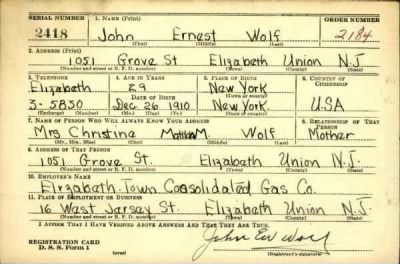 SERIAL NUMBER 1. NAME (Print) ORDER NUMBER
2418 John Ernest Wolf 2184
(First) (Middle) (Last)
2. ADDRESS (Print)
1051 Grove St Elizabeth Union N.J
(Number and street or R. F. D. number) (Town) (County) (State)
3. TELEPHONE 4. AGE IN YEARS 5. PLACE OF BIRTH 6. COUNTRY OF CITIZENSHIP
Elizabeth 29 New York
DATE OF BIRTH (Town or county)
3-5830 Dec 26 1910 New York USA
(Exchange) (Number) (Mo.) (Day) (Yr.) (State or country)
7. NAME OF PERSON WHO WILL ALWAYS KNOW YOUR ADDRESS 8. RELATIONSHIP OF THAT PERSON
Mrs Christine M. Wolf Mother
(Mr., Mrs., Miss) (First) (Middle) (Last)
9. ADDRESS OF THAT PERSON
1051 Grove St. Elizabeth Union N.J.
(Number and street or R. F. D. number) (Town) (County) (State)
10. EMPLOYER'S NAME
Elizabeth-Town Consolidated Gas Co.
11. PLACE OF EMPLOYMENT OR BUSINESS
16 West Jersey St. Elizabeth Union N.J.
(Number and street or R. F. D. number) (Town) (County) (State)
I AFFIRM THAT I HAVE VERIFIED ABOVE ANSWERS AND THAT THEY ARE TRUE.
REGISTRATION CARD John E Wolf
D. S. S. Form 1 (over) (Registrant's signature)